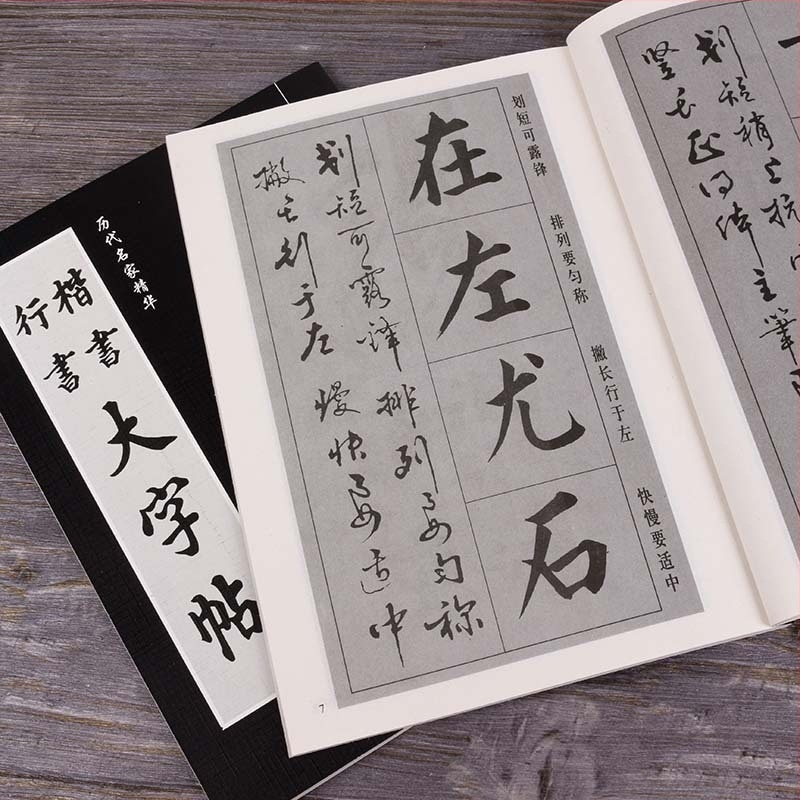 历代名家精华
楷書
行書
大字帖
划短可露锋
排列要匀称
撇长行于左
快慢要适中
在左尤石
划短可露锋 排列要匀称
撇长行于左 慢快要适中
7
划短稍上抗
竖长正得体 主笔